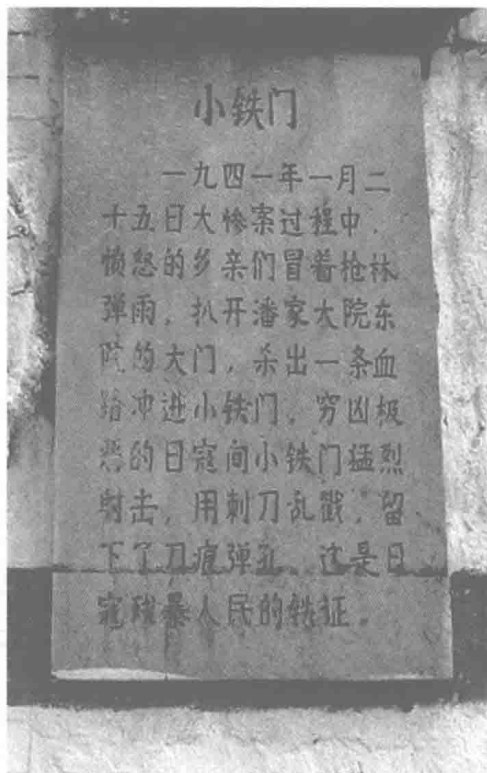 小铁门
一九四一年一月二
十五日大惨案过程中，
愤怒的乡亲们冒着枪林
弹雨，扒开潘家大院东
院的大门，杀出一条血
路冲进小铁门，穷凶极
恶的日寇间小铁门猛烈
射击，用刺刀乱戳，留
下了刀痕弹孔。这是日
寇残暴人民的铁证。